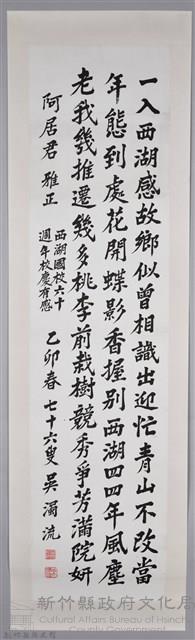 一入西湖感故鄉似曾相識出迎忙青山不改當
年態到處花開蝶影香握別西湖四四年風塵
老我幾推遷幾多桃李前栽樹競秀爭芳滿院妍
阿居君 雅正
西湖國校六十
週年校慶有感
乙卯春 七十六叟 吳濁流
新竹縣政府文化局
Cultural Affairs Bureau of Hsinchu
County Government